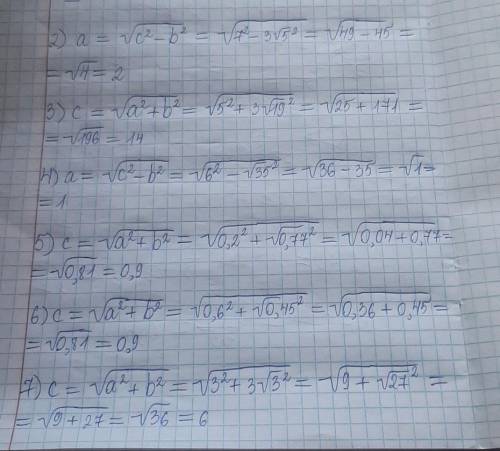 2) a = √c²-b² = √7²-3√5² = √49-45 =
= √4 = 2
3) c = √a²+b² = √5²+3√19² = √25+171 =
= √196 = 14
4) a = √c²-b² = √6²-√35² = √36-35 = √1 =
= 1
5) c = √a²+b² = √0,2²+√0,77² = √0,04+0,77 =
= √0,81 = 0,9
6) c = √a²+b² = √0,6²+√0,45² = √0,36+0,45 =
= √0,81 = 0,9
7) c = √a²+b² = √3²+3√3² = √9+√27² =
= √9+27 = √36 = 6